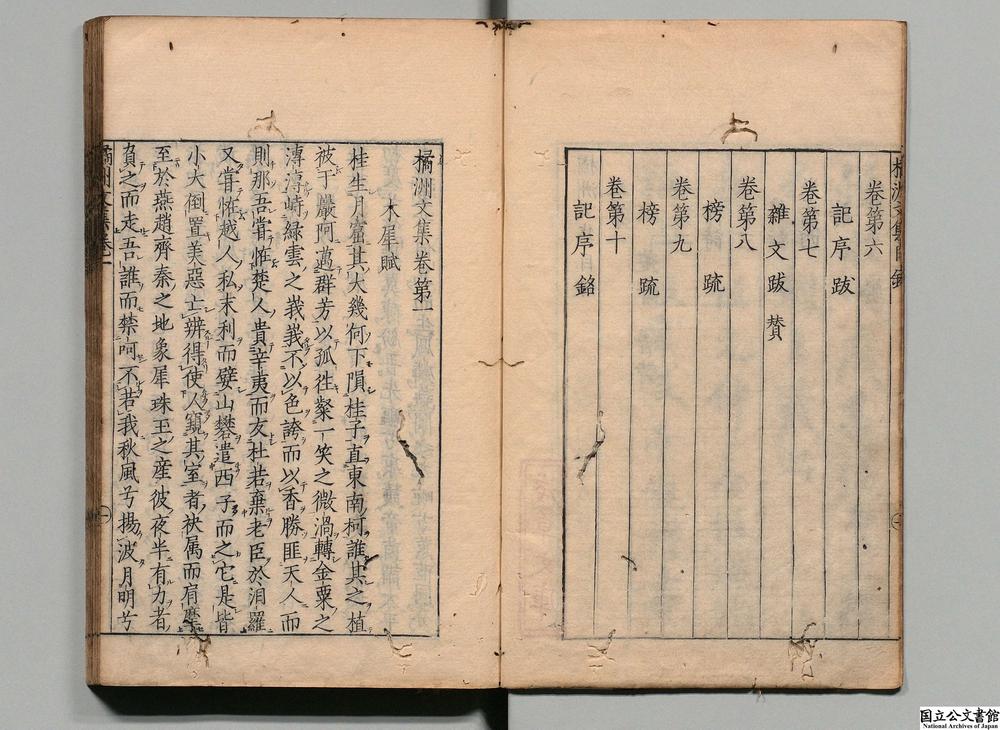 橘洲文集目錄
卷第六
記序跋
卷第七
雜文跋賛
卷第八
榜疏
卷第九
榜疏
卷第十
記序銘
橘洲文集卷第一
木犀賦
桂生月窟其大幾何下隕桂子直東南柯誰其之植
被于巖阿邁群芳以孤徃粲一笑之微渦轉金粟之
漙漙峙緑雲之莪莪不以色誇而以香勝匪天人而
則那吾甞恠楚人貴辛夷而友杜若棄老臣於汨羅
又甞恠越人私末利而嬖山礬遣西子而之它是皆
小大倒置美惡亡辨得使人窺其室者袂属而肩摩
至於燕趙齊秦之地象犀珠玉之産彼夜半有力者
負之而走吾誰而禁呵不若我秋風兮揚波月明兮
橘洲文集卷一
一
国立公文書館
National Archives of Japan